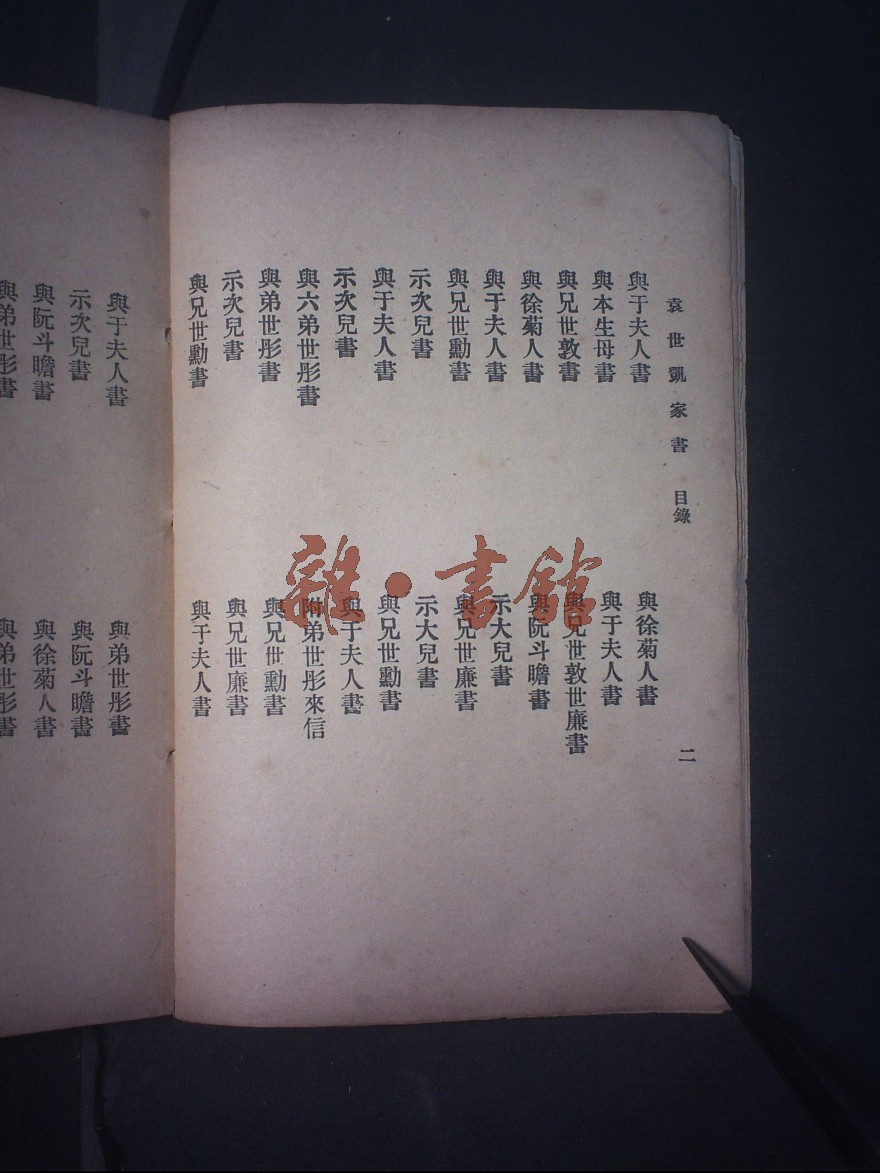 袁世凱家書 目錄 二
與于夫人書
與本生母書
與兄世敦書
與徐菊人書
與于夫人書
與兄世勳書
示次兒書
與于夫人書
示次兒書
與六弟世彤書
與弟世彤書
示次兒書
與兄世勳書
與徐菊人書
與于夫人書
與兄世敦世廉書
與阮斗瞻書
示大兒書
與兄世廉書
示大兒書
與兄世勳書
與于夫人書
附弟世彤來信
與兄世勳書
與兄世廉書
與于夫人書
與于夫人書
示次兒書
與阮斗瞻書
與弟世彤書
與弟世彤書
與阮斗瞻書
與徐菊人書
與弟世彤書
雜·書館